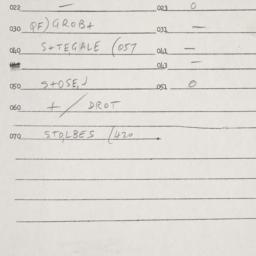 022 — 023 0
030 QF)GROB+ 031 —
040 S+TEGALE (057 041 —
043 —
050 S+OSE,J 051 0
060 +/DROT
070 STOLBES (420